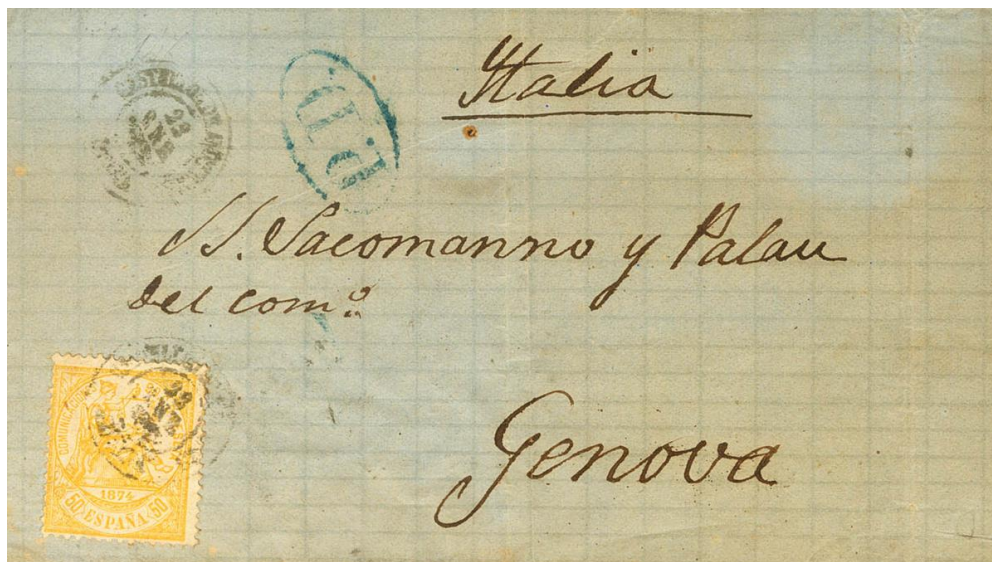 Italia
P.D.
SS. Sacomanno y Palau
del com.º
Genova
23
ENE
COMUNICACIONES
1874
50 ESPAÑA 50